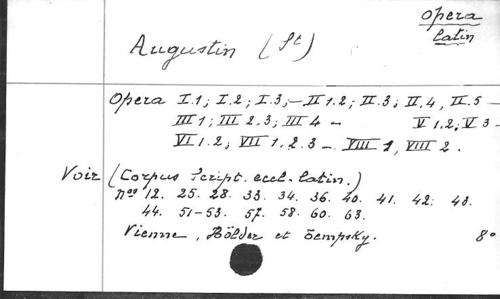 Opera
latin
Augustin (St)
Opera I.1; I.2; I.3; – II 1.2; II.3; II.4, II.5 –
III 1; III 2.3; III 4 – V 1.2; V 3 –
VI 1.2; VII 1.2.3 – VIII 1, VIII 2.
Voir (Corpus Script. eccl. latin.)
nos 12. 25. 28. 33. 34. 36. 40. 41. 42. 43.
44. 51-53. 57. 58. 60. 63.
Vienne, Hölder et Tempsky. 8°